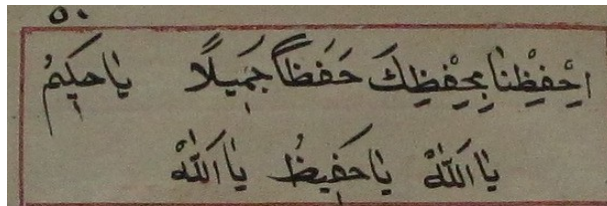 ٥٠
اِحْفِظْنَا بِحِفْظِكَ حَفَظاً جَمِيلًا يَا حَكِيمُ
يَا اَللّٰهْ يَا حَفِيظُ يَا اَللّٰهْ